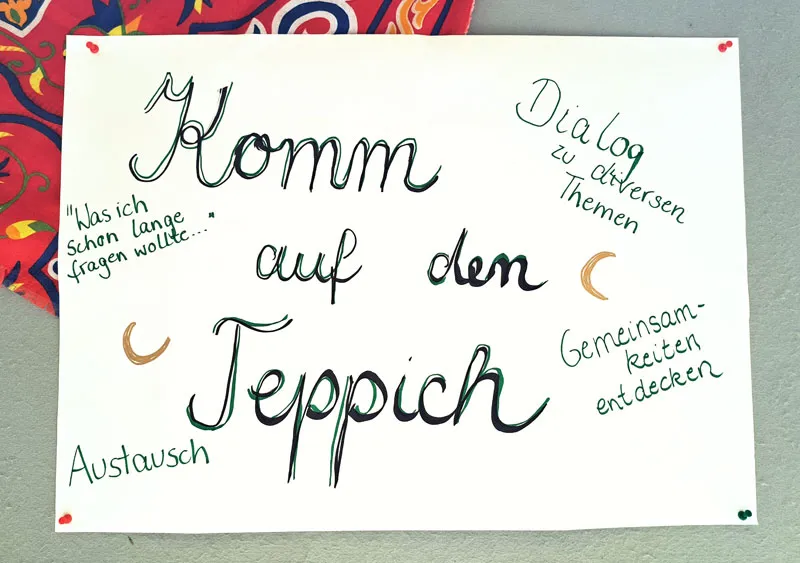 Komm
auf den
Teppich
Dialog
zu diversen
Themen
"Was ich
schon lange
fragen wollte..."
Gemeinsam-
keiten
entdecken
Austausch